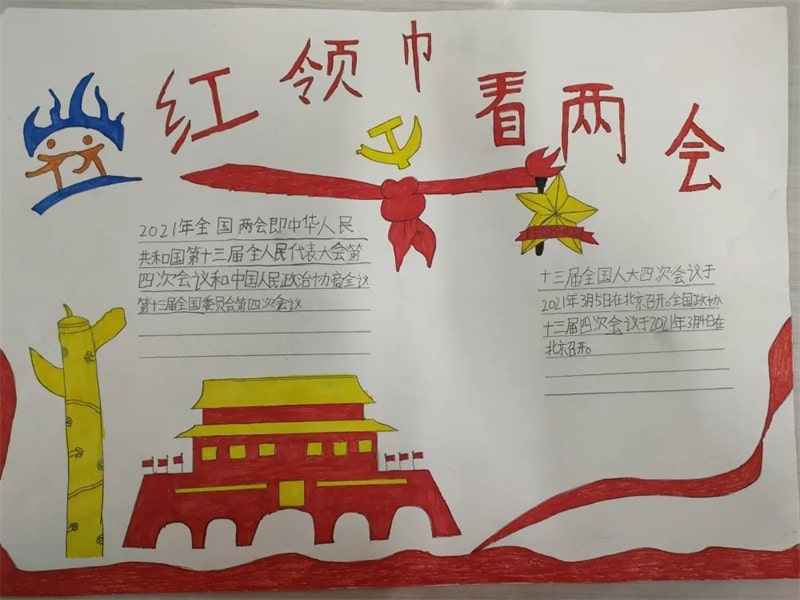 红领巾看两会
2021年全国两会即中华人民
共和国第十三届全人民代表大会第
四次会议和中国人民政治协商全议
第十三届全国委员会第四次会议
十三届全国人大四次会议于
2021年3月5日在北京召开。全国政协
十三届四次会议于2021年3月4日在
北京召开。